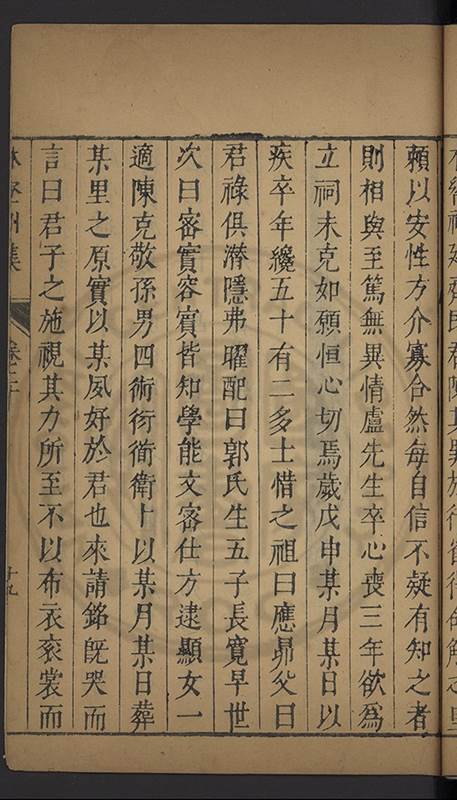 賴以安性方介寡合然每自信不疑有知之者
則相與至篤無異情盧先生卒心喪三年欲爲
立祠未克如願恒心切焉歲戊申某月某日以
疾卒年纔五十有二多士惜之祖曰應昴父曰
君祿俱潛隱弗曜配曰郭氏生五子長寬早世
次曰密實容賓皆知學能文密仕方逮顯女一
適陳克敬孫男四術衍衛卜以某月某日葬
某里之原實以某夙好於君也來請銘旣哭而
言曰君子之施視其力所至不以布衣衮裳而
集
卷二十
十九